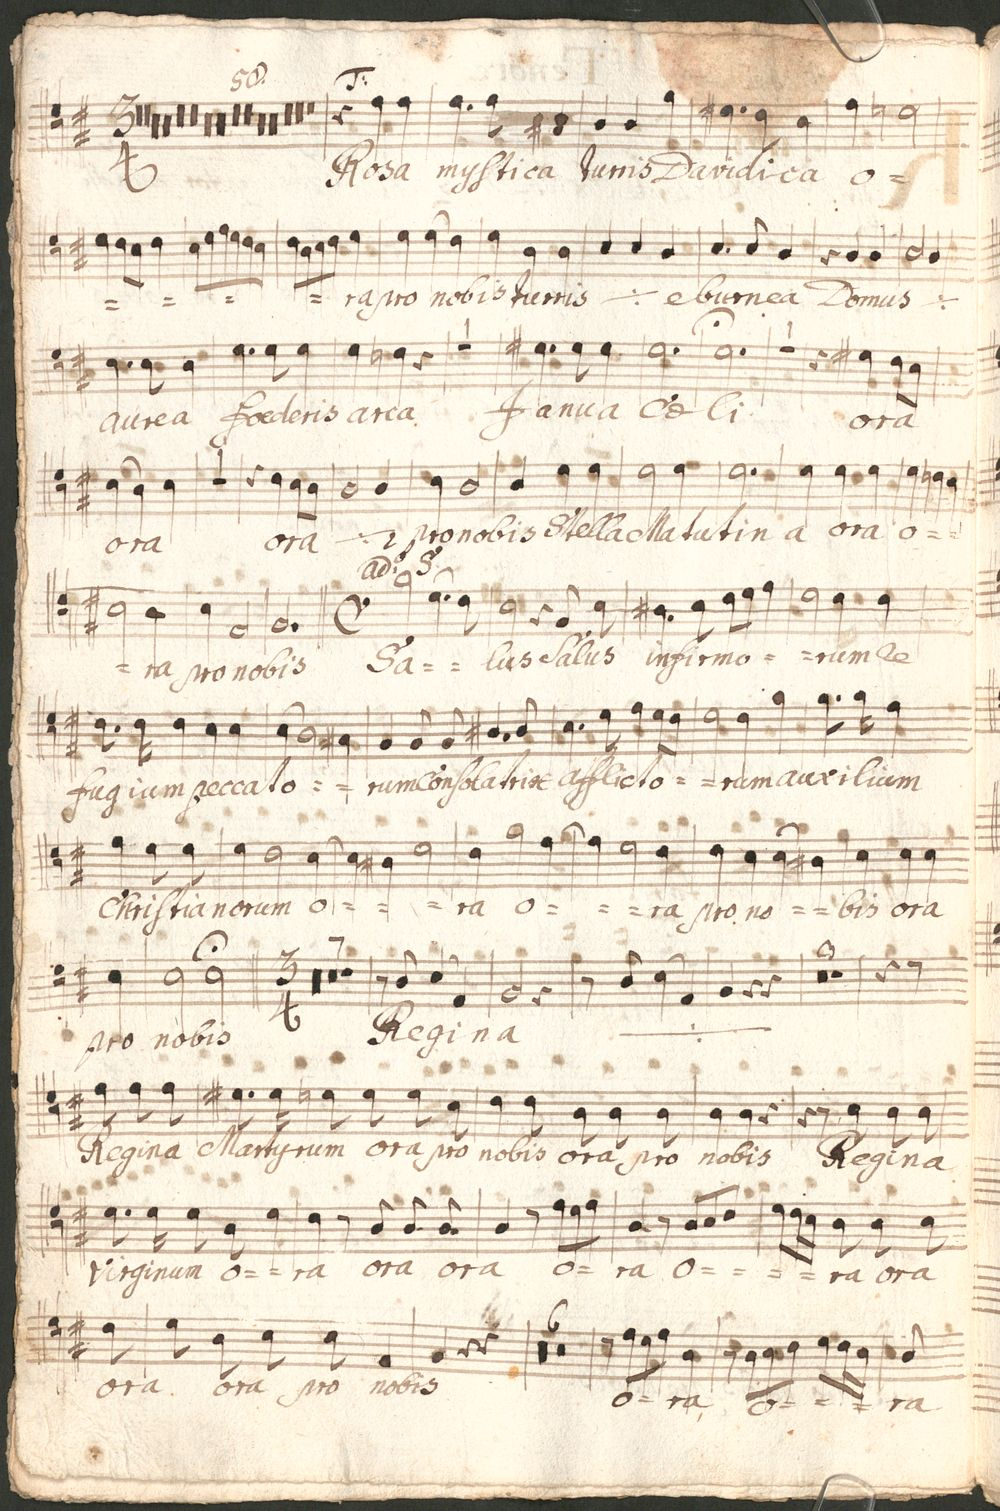 58. T:
3/4 Rosa mystica turris Davidica o =
= = = = ra pro nobis turris ÷ eburnea Domus ÷
aurea fœderis arca Janua Cæli ora
ora ora ÷ pro nobis Stella Matutina ora o = =
ad: S
= ra pro nobis Sa = = lus Salus infirmo = = rum Re
fugium peccato = = rum Consolatrix afflicto = = rum auxilium
Christianorum o = = = ra o = = = ra pro no = = bis ora
7 8
pro nobis 3/4 Regina ÷
Regina Martyrum ora pro nobis ora pro nobis Regina
Virginum o = = ra ora ora o = ra o = = = = ra ora
6
ora ora pro nobis o = ra o = = = ra